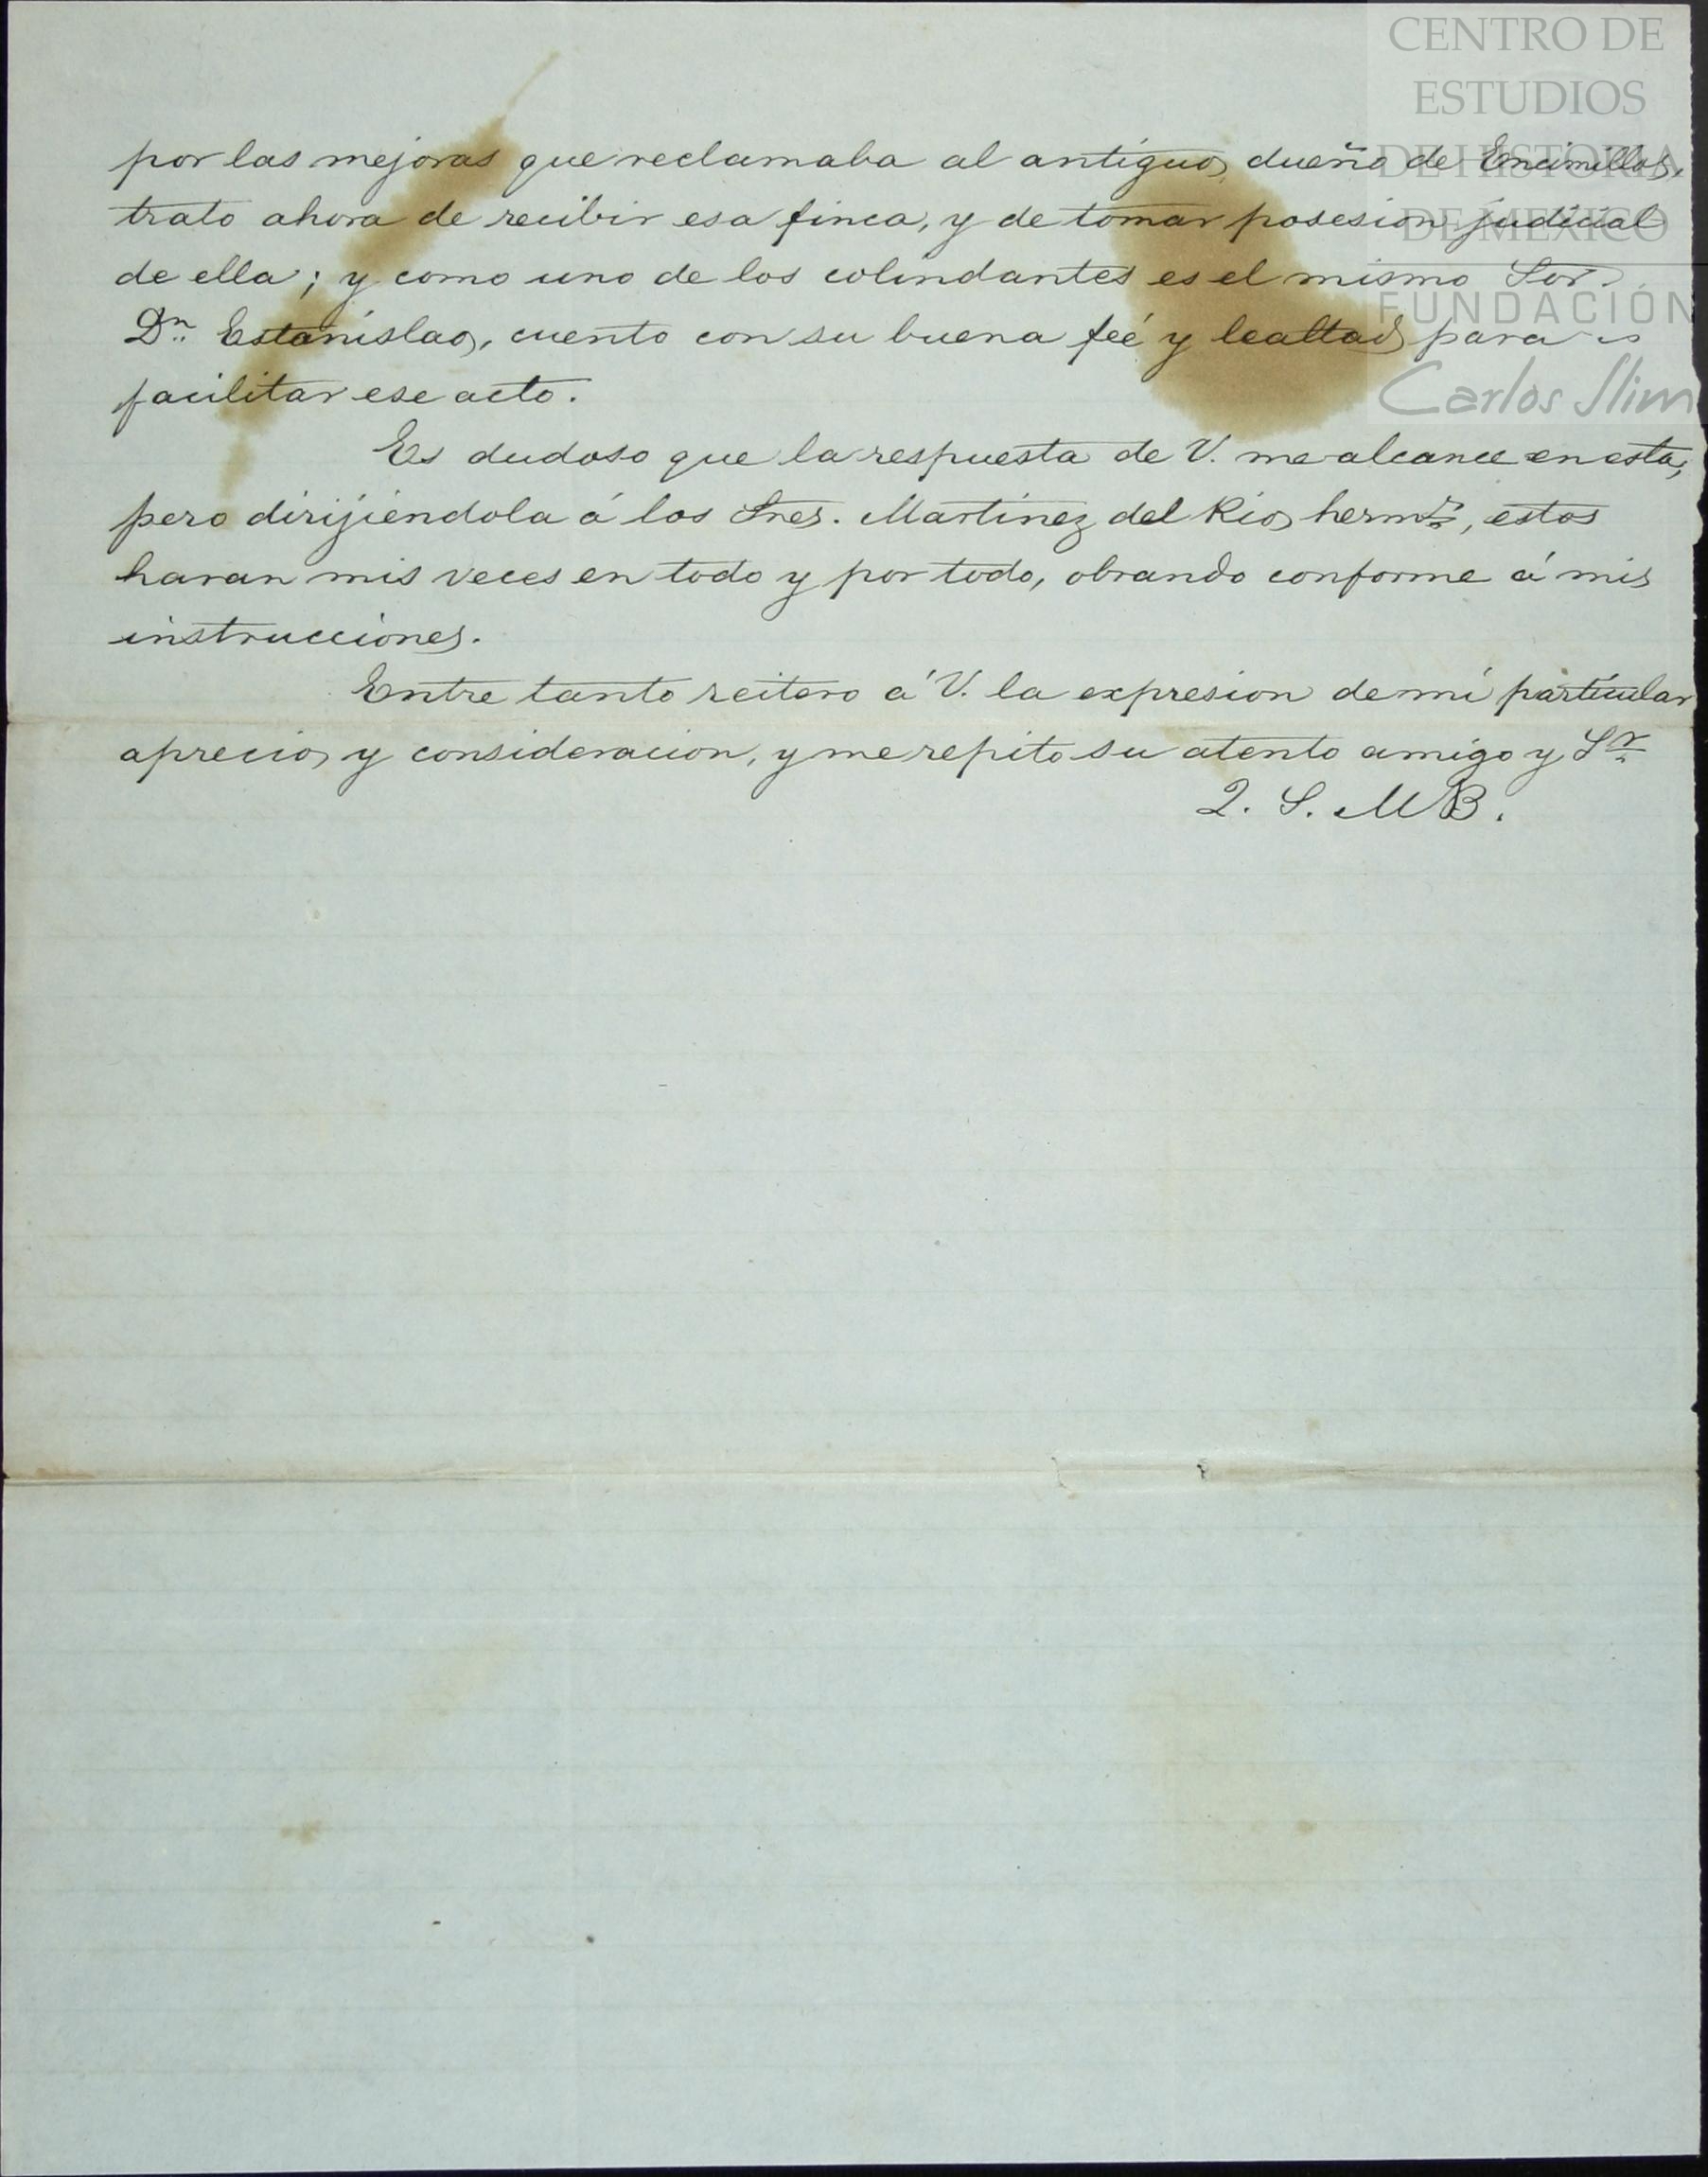 CENTRO DE
ESTUDIOS
DE HISTORIA
DE MEXICO
FUNDACIÓN
Carlos Slim
por las mejoras que reclamaba al antiguo dueño de Encinillas,
trato ahora de recibir esa finca, y de tomar posesion judicial
de ella; y como uno de los colindantes es el mismo Sor.
Dn. Estanislao, cuento con su buena feé y lealtad para
facilitar ese acto.
Es dudoso que la respuesta de V. me alcance en esta,
pero dirijiéndola á los Sres. Martinez del Rio hermos, estos
haran mis veces en todo y por todo, obrando conforme á mis
instrucciones.
Entre tanto reitero á V. la expresion de mi particular
aprecio y consideracion, y me repito su atento amigo y Sr.
Q. S. M B.